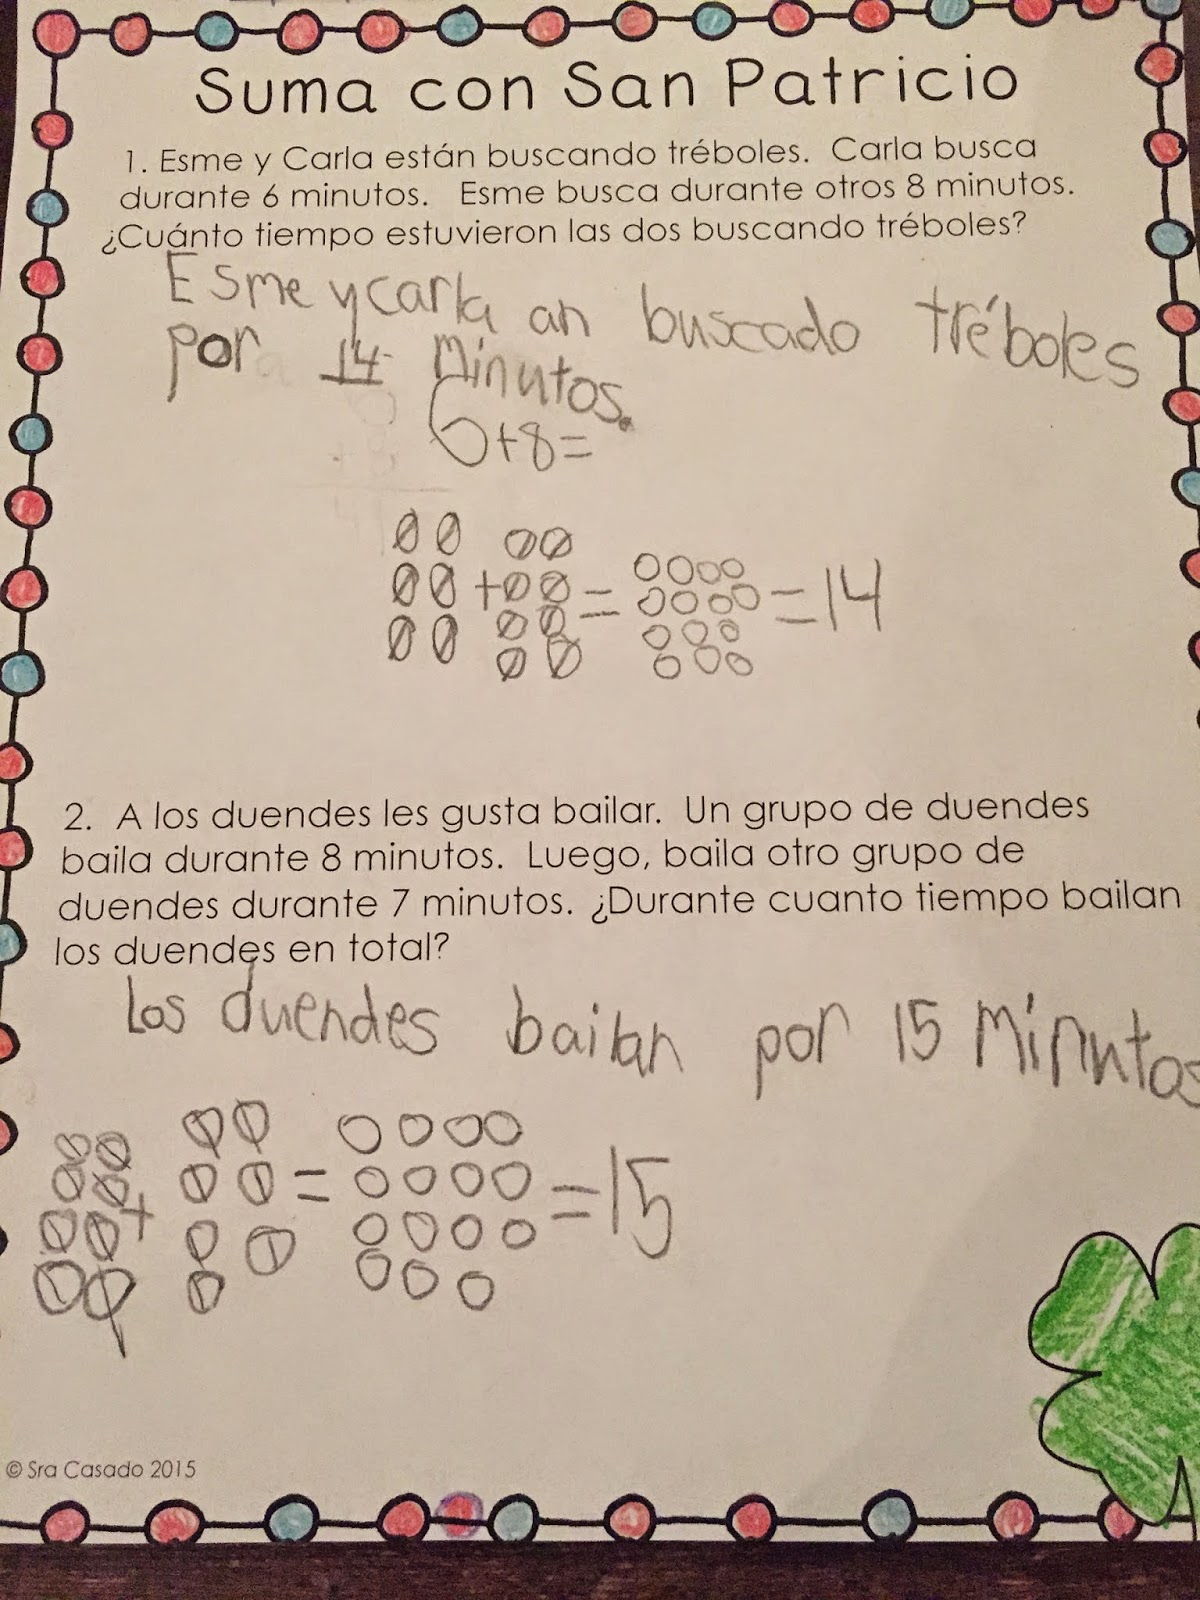 Suma con San Patricio
1. Esme y Carla están buscando tréboles. Carla busca
durante 6 minutos. Esme busca durante otros 8 minutos.
¿Cuánto tiempo estuvieron las dos buscando tréboles?
Esme y carla an buscado tréboles
por 14 minutos.
6+8=
+ = = 14
2. A los duendes les gusta bailar. Un grupo de duendes
baila durante 8 minutos. Luego, baila otro grupo de
duendes durante 7 minutos. ¿Durante cuanto tiempo bailan
los duendes en total?
Los duendes bailan por 15 minutos
+ = = 15
© Sra Casado 2015